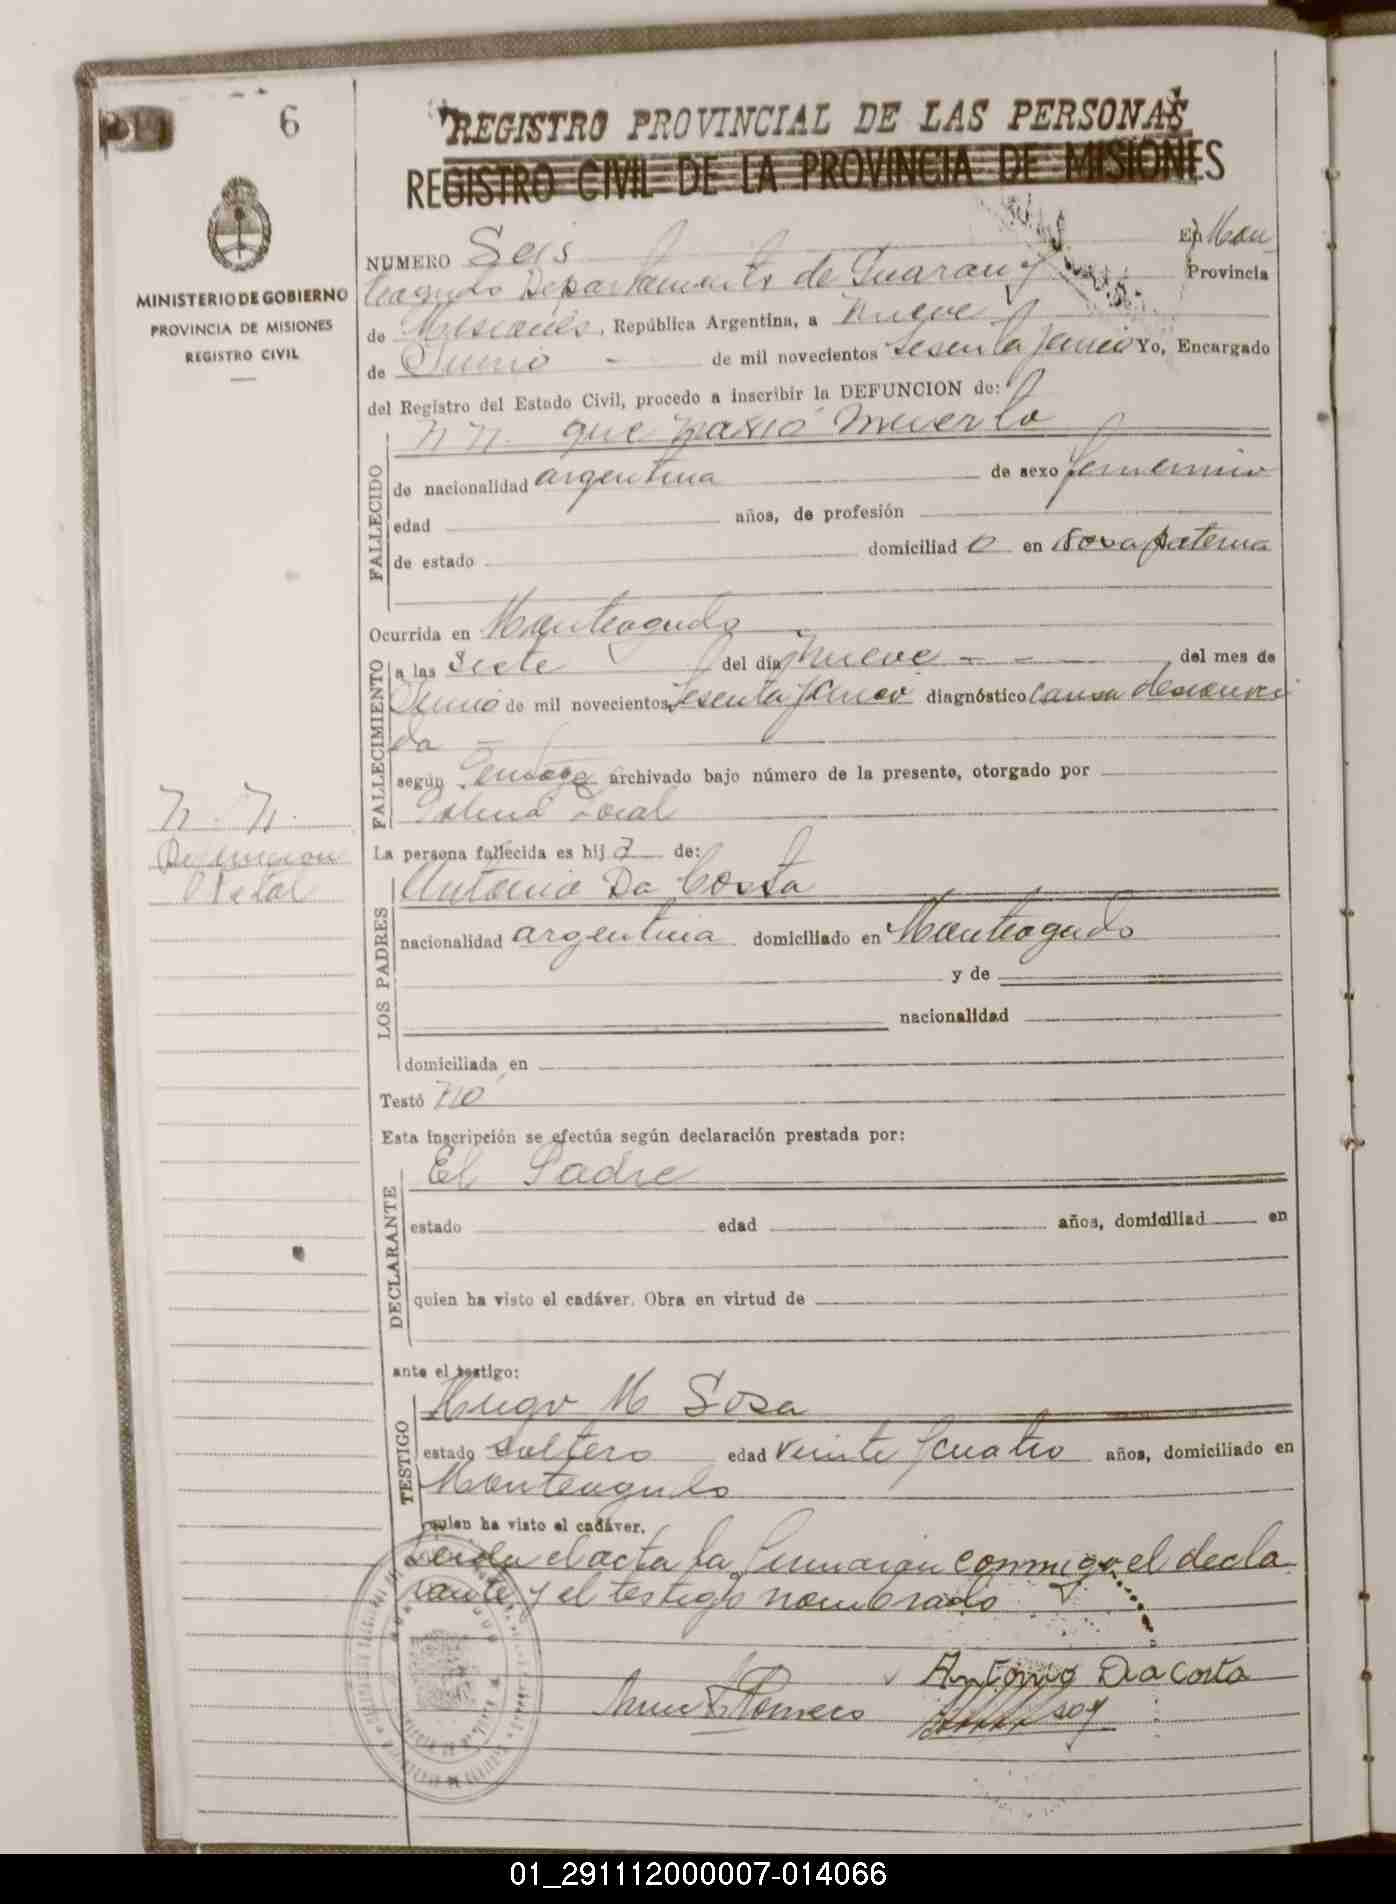 6
REGISTRO PROVINCIAL DE LAS PERSONAS
REGISTRO CIVIL DE LA PROVINCIA DE MISIONES
MINISTERIO DE GOBIERNO
PROVINCIA DE MISIONES
REGISTRO CIVIL
NUMERO Seis En Mon
teagudo Departamento de Guarany Provincia
de Misiones, República Argentina, a nueve
de Junio de mil novecientos sesenta y cinco Yo, Encargado
del Registro del Estado Civil, procedo a inscribir la DEFUNCION de:
N N. que nasió muerto
FALLECIDO
de nacionalidad argentina de sexo femenino
edad años, de profesión
de estado domiciliad o en casa paterna
Ocurrida en Monteagudo
FALLECIMIENTO
a las siete del día nueve - - del mes de
Junio de mil novecientos sesenta y cinco diagnóstico causa desconoci
da -
según archivado bajo número de la presente, otorgado por
Local
N. N.
Defuncion
La persona fallecida es hij a de:
LOS PADRES
Antonio Da Costa
nacionalidad argentina domiciliado en Monteagudo
y de
nacionalidad
domiciliada en
Testó no
Esta inscripción se efectúa según declaración prestada por:
DECLARANTE
El Padre
estado edad años, domiciliad en
quien ha visto el cadáver. Obra en virtud de
ante el testigo:
TESTIGO
Hugo M Sosa
estado soltero edad veinte y cuatro años, domiciliado en
Monteagudo
quien ha visto el cadáver.
Leida el acta la firmaron conmigo el decla
rante y el testigo nombrado
Antonio Da Costa
Romero
01_291112000007-014066